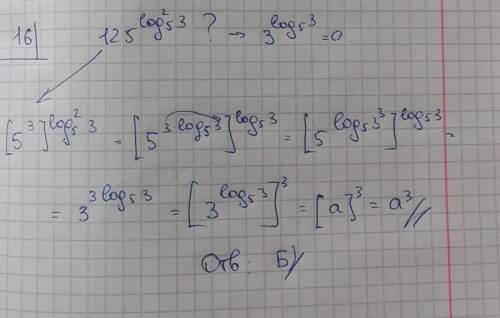 16| 125^{log²₅3} ? → 3^{log₅3} = a.
[5³]^{log²₅3} = [5^{3·log₅3}]^{log₅3} = [5^{log₅3³}]^{log₅3} =
= 3^{3log₅3} = [3^{log₅3}]³ = [a]³ = a³//
Отв: Б/